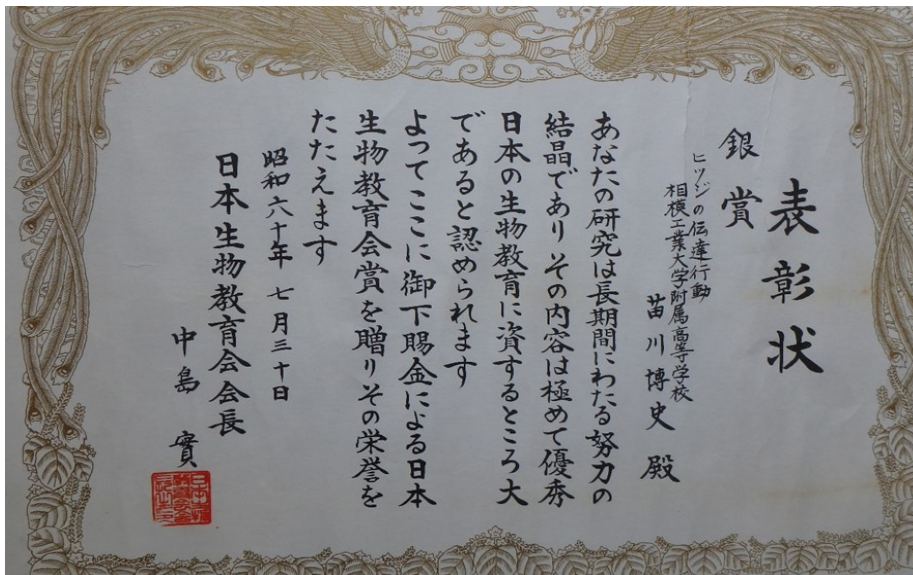 表彰状
銀賞
ヒツジの伝達行動
相模工業大学附属高等学校
苗川博史 殿
あなたの研究は長期間にわたる努力の
結晶でありその内容は極めて優秀
日本の生物教育に資するところ大
であると認められます
よってここに御下賜金による日本
生物教育会賞を贈りその栄誉を
たたえます
昭和六十年 七月三十日
日本生物教育会会長
中島 實